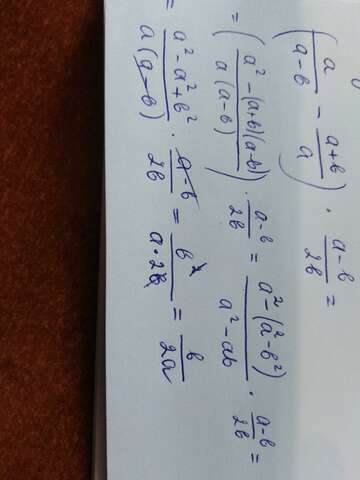 (a/(a-b) - (a+b)/a) · (a-b)/2b =
= (a²-(a+b)(a-b))/(a(a-b)) · (a-b)/2b = (a²-(a²-b²))/(a²-ab) · (a-b)/2b =
= (a²-a²+b²)/(a(a-b)) · (a-b)/2b = b²/(a·2b) = b/2a